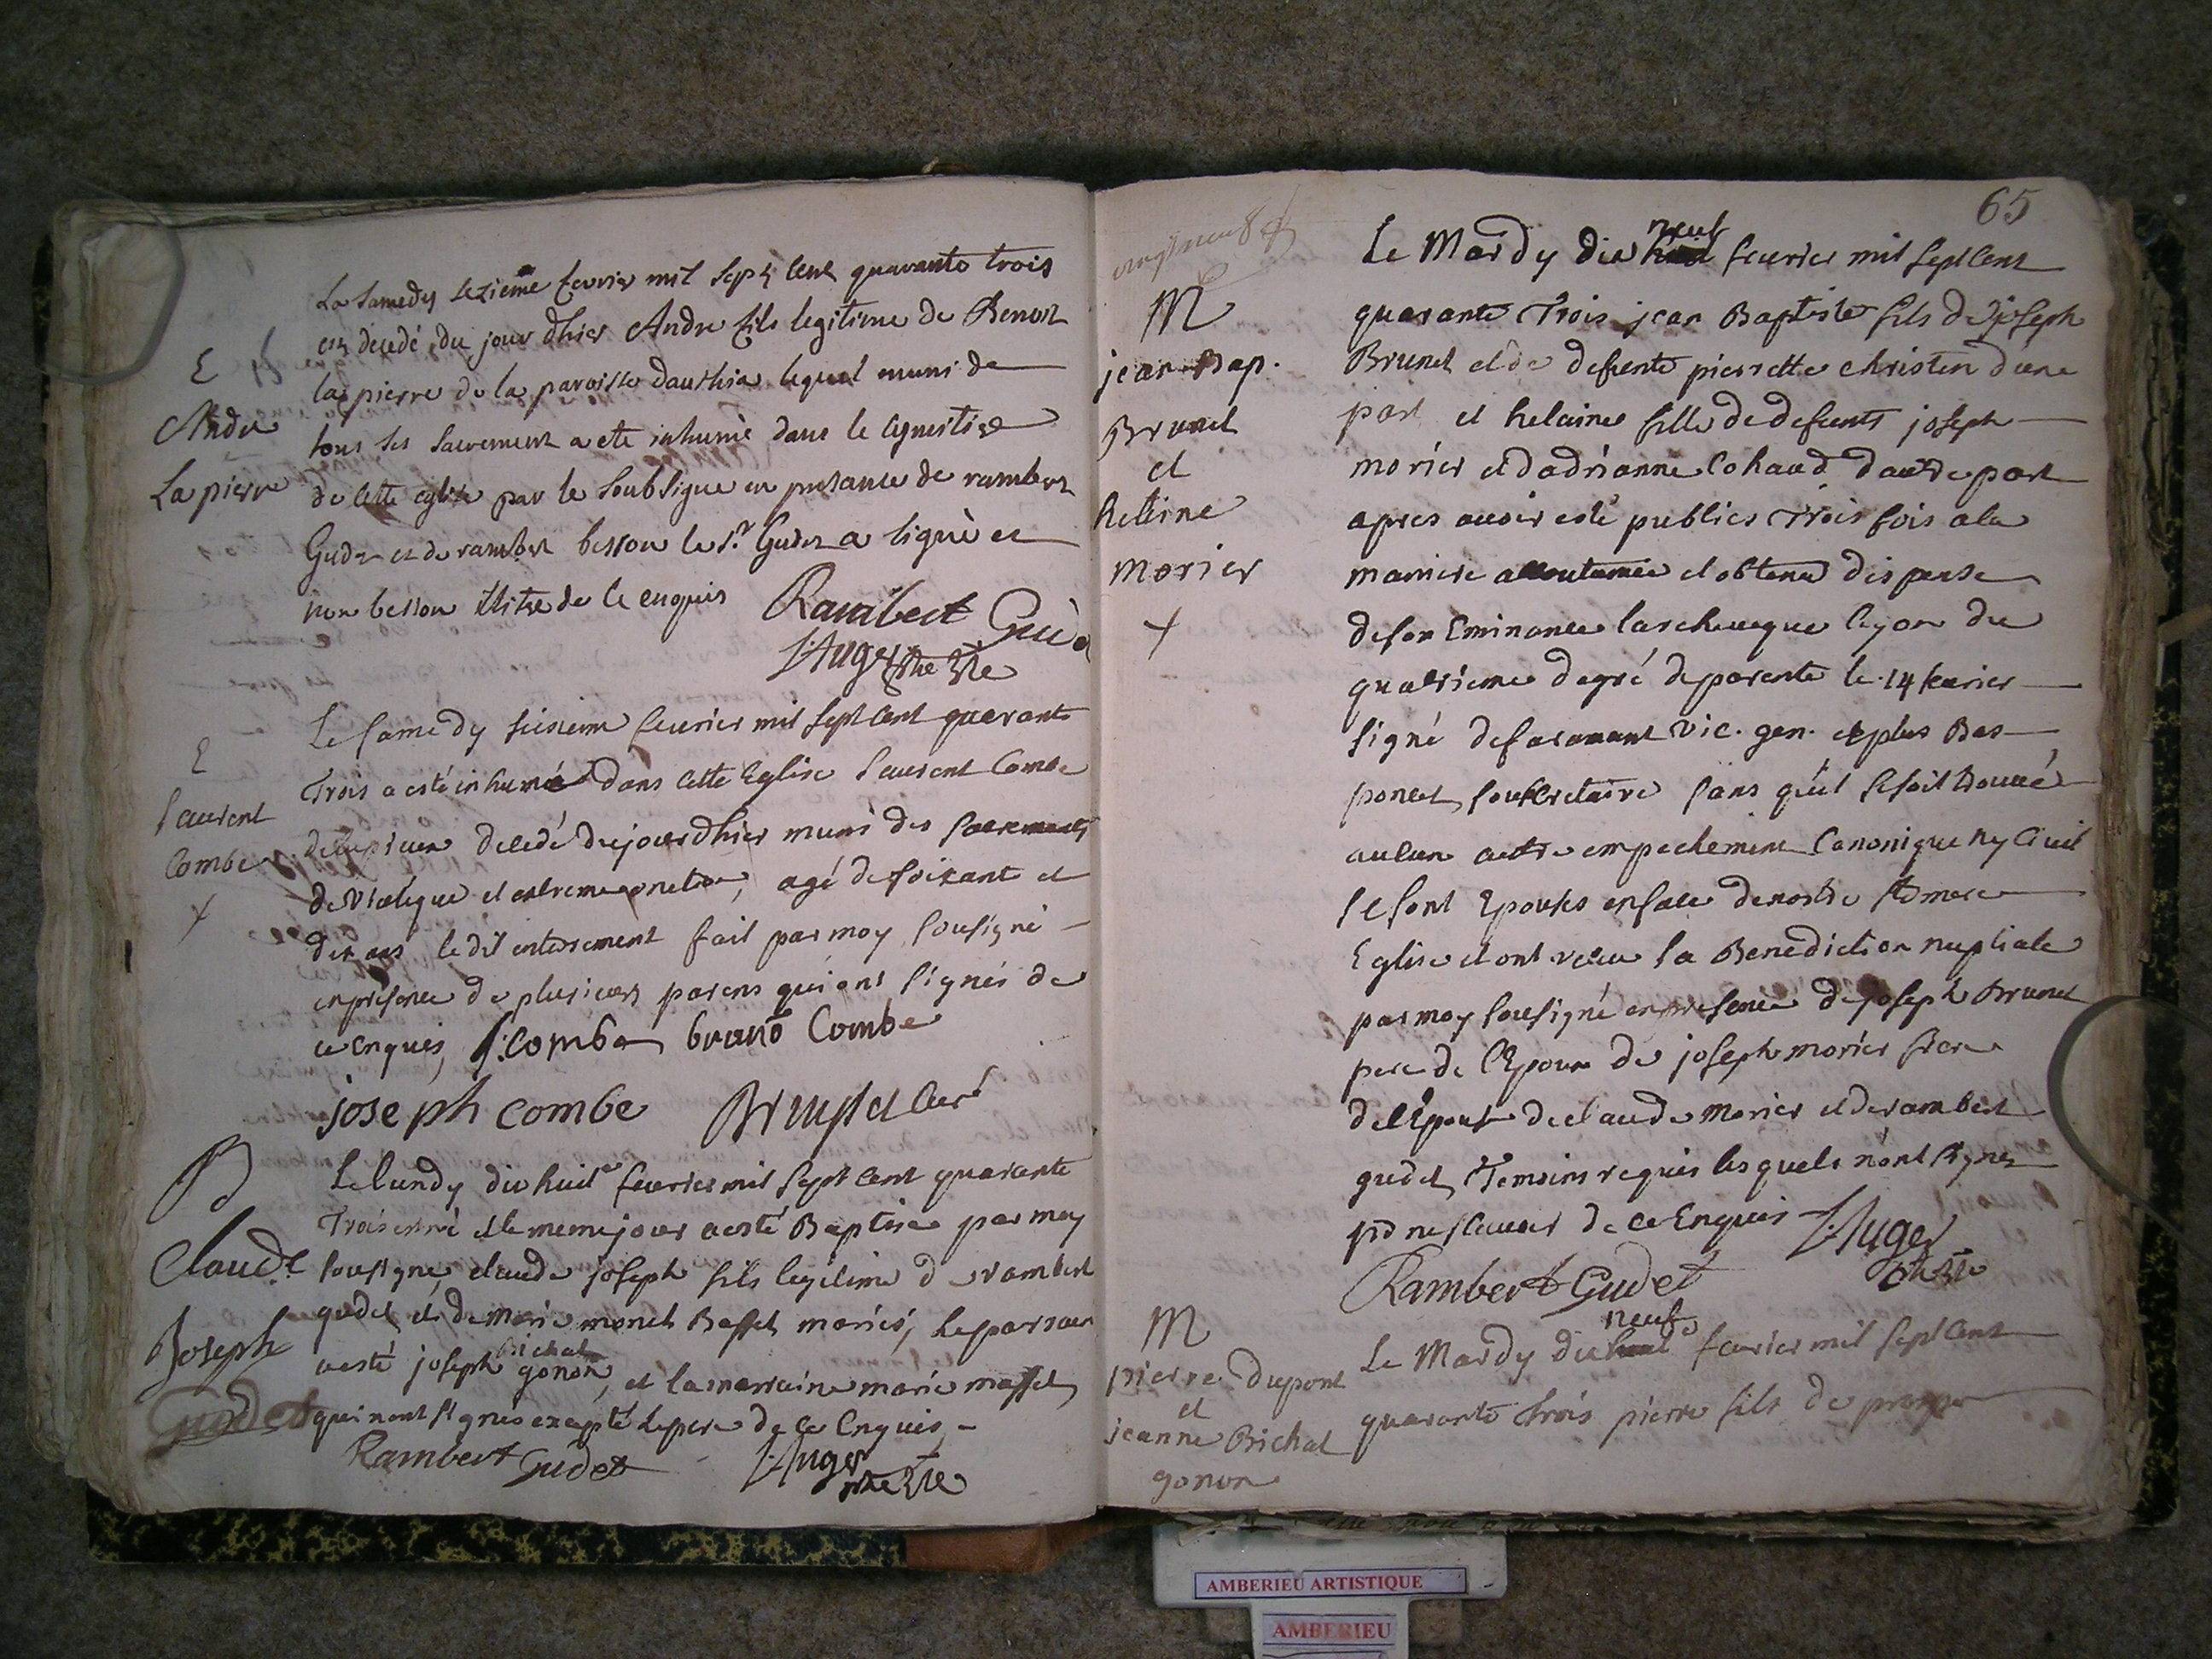 Le samedy sezieme fevrier mil sept cent quarante trois
est decedé du jour dhier Andre fils legitime de Benoit
lapierre de la paroisse dauthia lequel muni de
tous ses sacrement a ete inhumé dans le
de cette eglise par le soubsigne en presance de rambert
Gudet et de rambert besson le Sr Gudet a signè et
non besson illitre de ce enquis Rambert Gudet
Auger ptre Vre
E
Andre
La pierre
Le samedy seisieme feurier mil sept cent quarante
Trois a esté inhumé dans cette Eglise laurent Combe
decedé dujourdhier muni des sacrements
de viatique et extreme onction, agé de soixante et
dix ans ledit enterrement fait par moy sousigné
en presence de plusieurs parens qui ont signés de
ce enquis, Combe Combe
joseph combe curé
E
laurent
Combe
+
Le lundy dix huit feurier mil sept cent quarante
Trois est né et le meme jour a esté Baptise par moy
sousigne, claude joseph fils legitime de rambert
gudet et de marie monet Basset mariés, le parrain
bichat
a esté joseph gonon, et la marraine marie masset
qui nont signes excepté le pere de ce Enquis -
Rambert Gudet Auger
ptre Vre
B
Claude
Joseph
Gudet
65
neuf
Le Mardy dix huit feurier mil sept cent
quarante Trois jean Baptiste fils de joseph
Brunet et de defunte pierrette christin dune
part et helaine fille de defunts joseph
morier et dadrianne Cohaud dautre part
apres auoir esté publies trois fois a la
maniere accoutumée et obtenu dispense
de son Eminance larcheueque lyon du
quatrieme degré de parenté le 14 feurier
signé vic. gen. et plus Bas
poncet, sousecretaire sans quil se soit trouué
aucun autre empechement Canonique ny Ciuil
se sont Epousés en face de nostre Ste mere
Eglise et ont receu la Benediction nuptiale
par moy sousigné en presence de joseph Brunet
pere de lEpoux de joseph morier frere
de lEpouse de claude morier et de rambert
gudet Temoins requis lesquels nont signes
pr ne scauoir de ce Enquis Auger
Rambert Gudet ptre Vre
M
jean Bap.
Brunet
et
heleine
morier
+
neuf
Le Mardy dix huit feurier mil sept cent
quarante trois pierre fils de
M
pierre Dupont
et
jeanne Bichat
gonon
AMBERIEU ARTISTIQUE
AMBERIEU